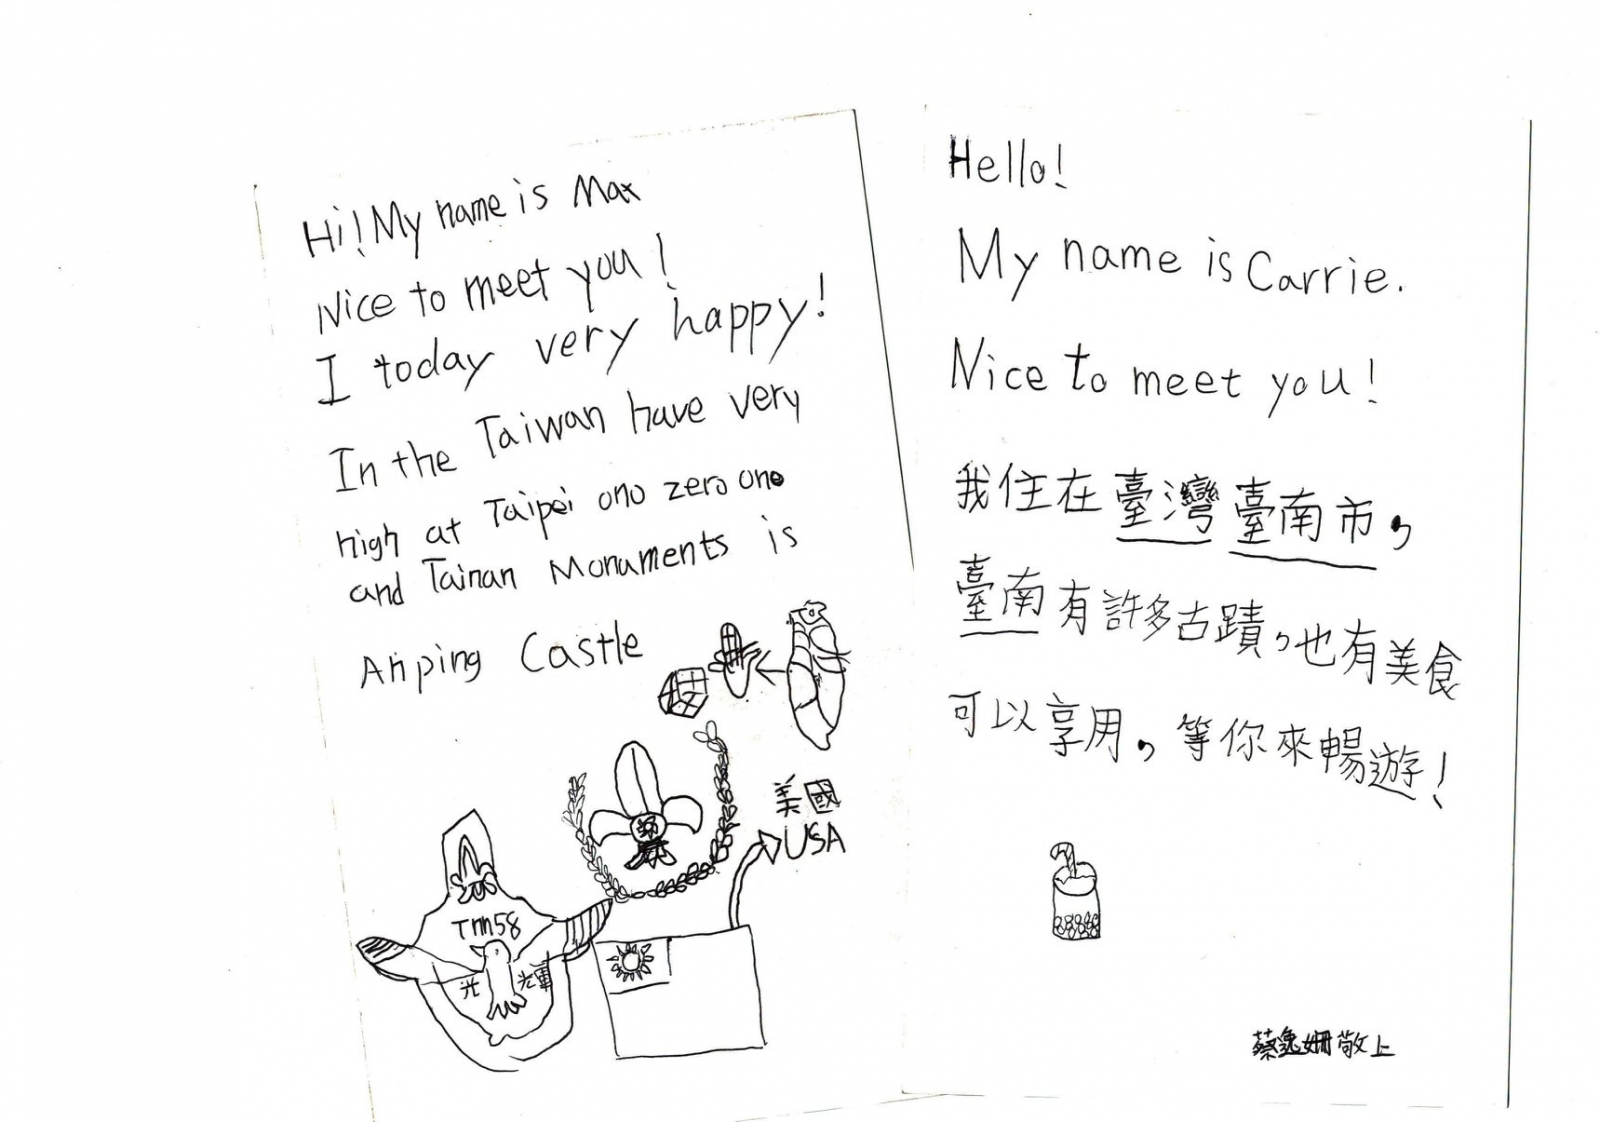 Hi! My name is Max
Nice to meet you!
I today very happy!
In the Taiwan have very
high at Taipei ono zero one
and Tainan Monuments is
Anping Castle
美國
USA
Tnn58
光 光軍
Hello!
My name is Carrie.
Nice to meet you!
我住在臺灣臺南市,
臺南有許多古蹟,也有美食
可以享用,等你來暢遊!
蔡 姍敬上